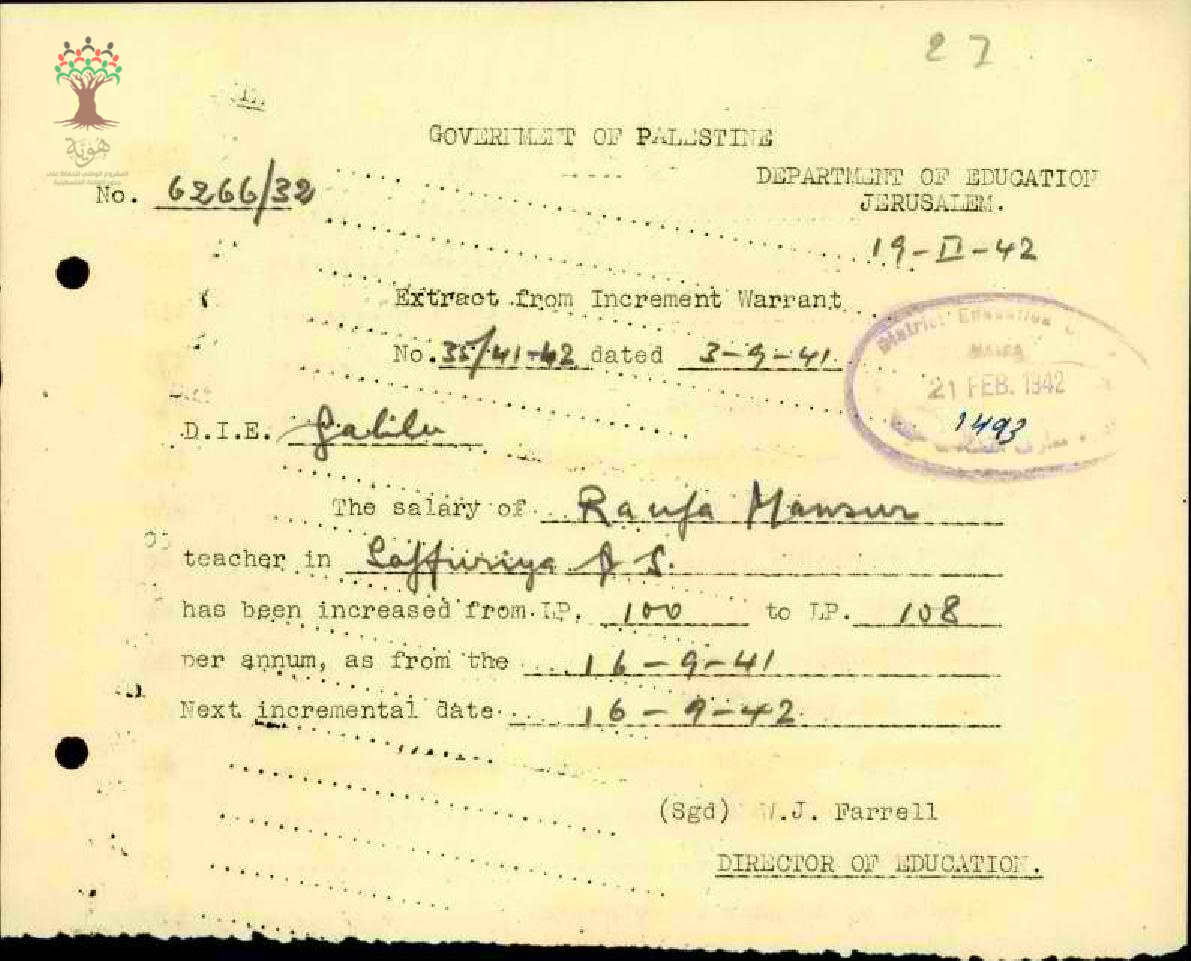 27
هُويَّة
المشروع الوطني للحفاظ على
GOVERNMENT OF PALESTINE
DEPARTMENT OF EDUCATION
JERUSALEM.
No. 6266/32
19-II-42
Extract from Increment Warrant
No. 35/41-42 dated 3-9-41.
District Education
HAIFA
21 FEB. 1942
1493
D.I.E. Galilee
The salary of Raufa Mansur
teacher in Saffuriya S.
has been increased from LP. 100 to LP. 108
per annum, as from the 16-9-41
Next incremental date 16-9-42
(Sgd) W.J. Farrell
DIRECTOR OF EDUCATION.